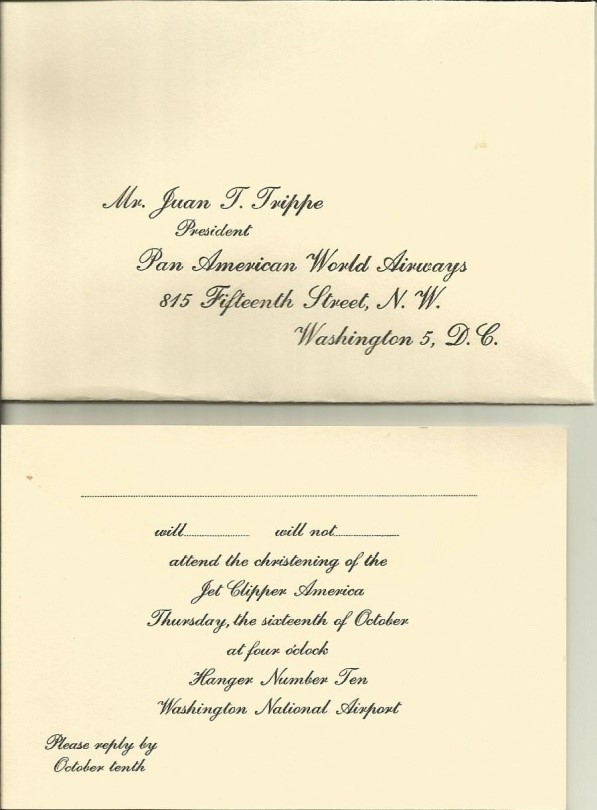 Mr. Juan T. Trippe
President
Pan American World Airways
815 Fifteenth Street, N. W.
Washington 5, D. C.
will.......... will not..........
attend the christening of the
Jet Clipper America
Thursday, the sixteenth of October
at four o'clock
Hanger Number Ten
Washington National Airport
Please reply by
October tenth